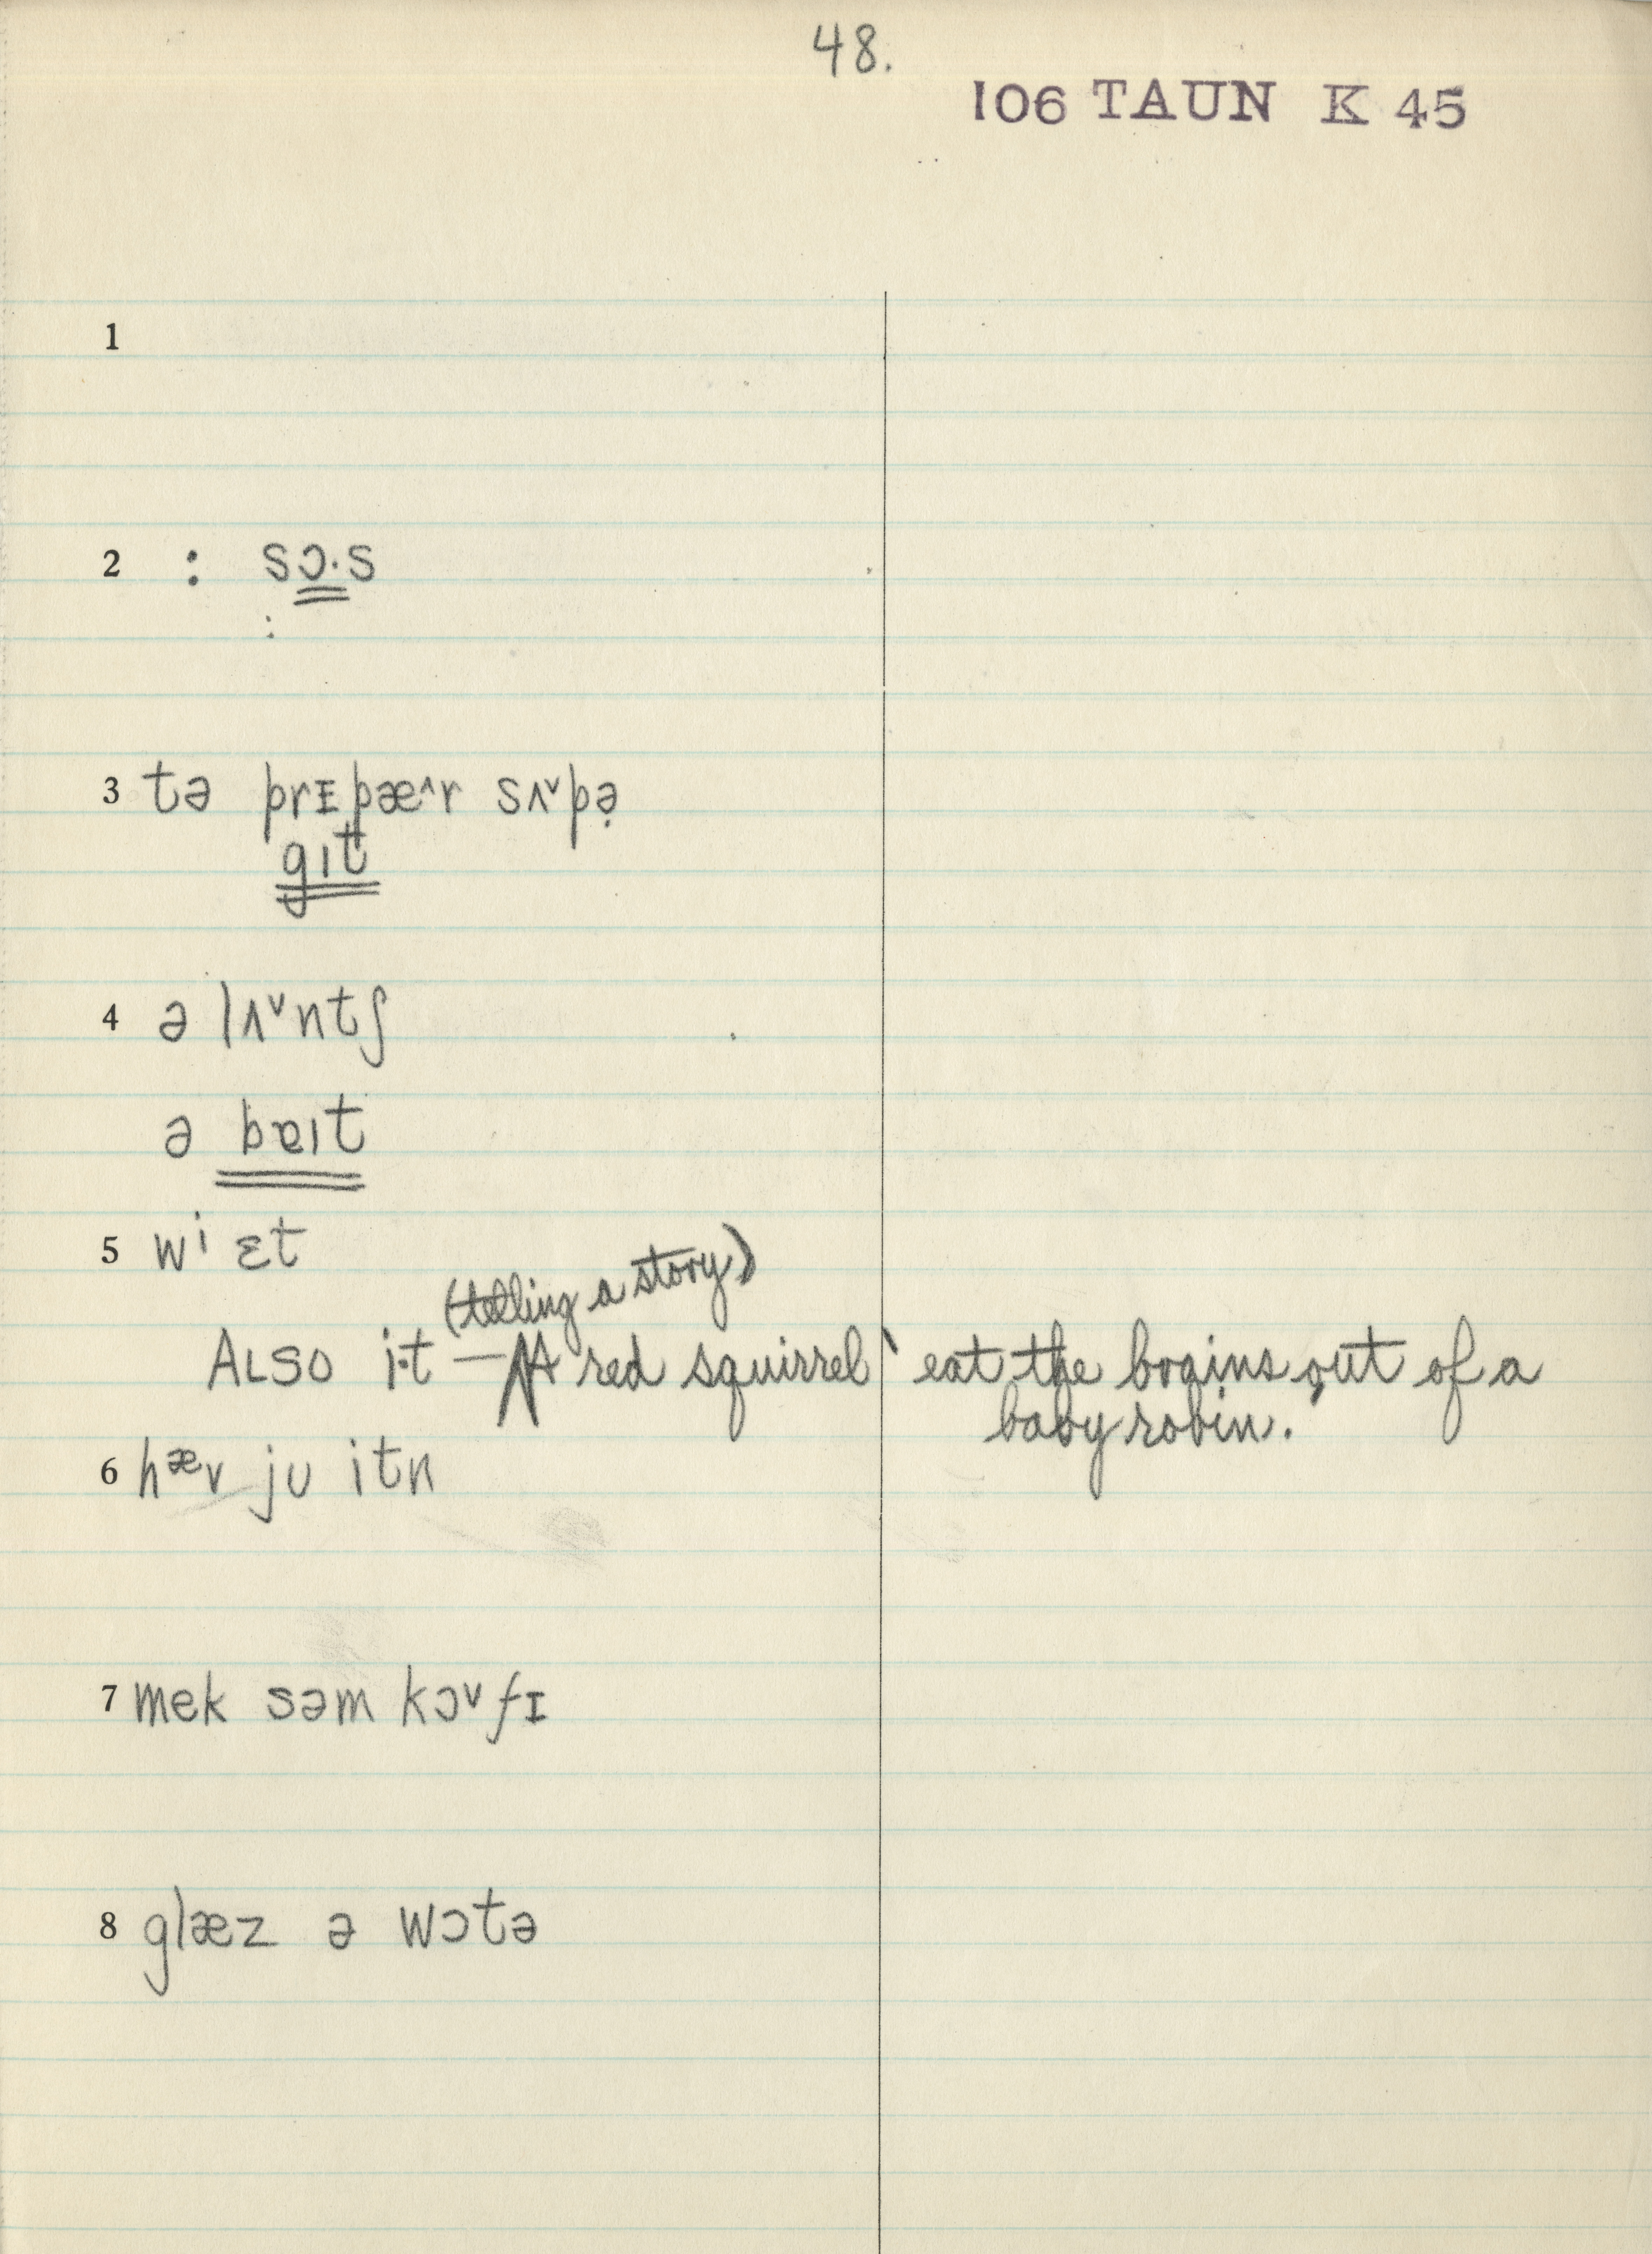 48.
106 TAUN K 45
1
2 : sɔ·s
:
3 tə prɪpæ^r sʌ˅pə̣
gɪt
4 ə lʌ˅ntʃ
ə bɐɪt
5 wⁱ ɛt
(telling a story)
ALSO i·t — A red squirrel ` eat the brains out of a
baby robin.
6 hæv jʊ itn
7 mek səm kɔ˅fɪ
8 glæz ə wɔtə